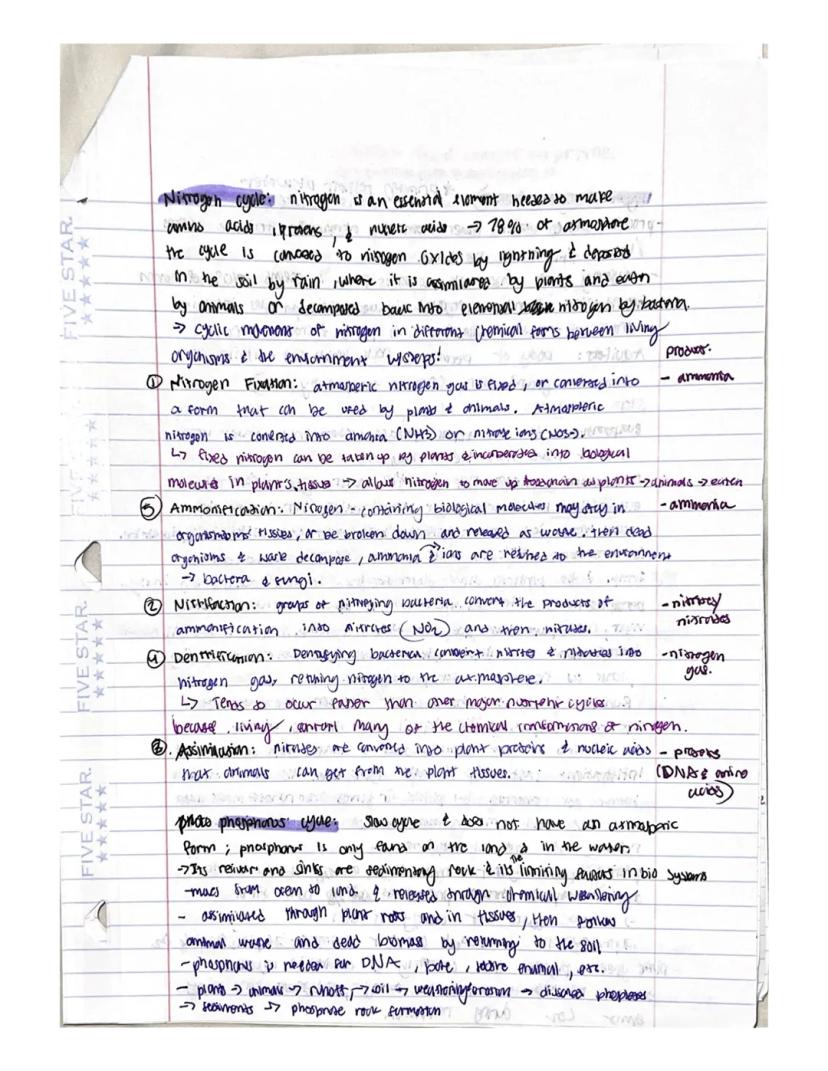 Nitrogen cycle: nitrogen is an essential element needed to make
amino acids, proteins, & nucleic acids → 78% of atmosphere
the cycle is converted to nitrogen oxides by lightning & deposited
in the soil by rain, where it is assimilated by plants and eaten
by animals or decomposed back into elemental nitrogen by bacteria.
→ cyclic movement of nitrogen in different chemical forms between living
organisms & the environment w/steps!
product:
① Nitrogen Fixation: atmospheric nitrogen gas is fixed, or converted into - ammonia
a form that can be used by plants & animals. Atmospheric
nitrogen is converted into amonia (NH3) or nitrate ions (NO3-).
↳ fixed nitrogen can be taken up by plants & incorporated into biological
molecules in plant's tissue → allows nitrogen to move up foodchain as plants → animals → eaten
⑤ Ammonification: Nitrogen-containing biological molecules may stay in - ammonia
organisms tissues, or be broken down and released as waste. then dead
organisms & waste decompose, ammonia & ions are returned to the environment
→ bacteria & fungi.
② Nitrification: groups of nitrifying bacteria convert the products of - nitrites/
nitrates
ammonification into nitrites (NO2) and then nitrates.
④ Denitrification: Denitrifying bacteria convert nitrites & nitrates into - nitrogen
gas.
nitrogen gas, returning nitrogen to the atmosphere.
↳ Tends to occur faster than other major nutrient cycles
because living control many of the chemical transformations of nitrogen.
③. Assimilation: nitrates are converted into plant proteins & nucleic acids - proteins
that animals can get from the plant tissues. (DNA & amino
acids)
phosphorus cycle: slow cycle & does not have an atmospheric
form; phosphorus is only found on the land & in the water.
→ Its reservoir and sinks are sedimentary rock & its the limiting factors in bio systems
- moves from ocean to land & released through chemical weathering
- assimilated through plant roots and in tissues, then
animal waste and dead biomass by returning to the soil
- phosphorus is needed for DNA, bone, enamal, etc.
- plants → animals → runoff → soil → weathering/erosion → dissolved phosphates
→ sediments → phosphate rock formation
FIVE STAR.
FIVE STAR.
FIVE STAR.